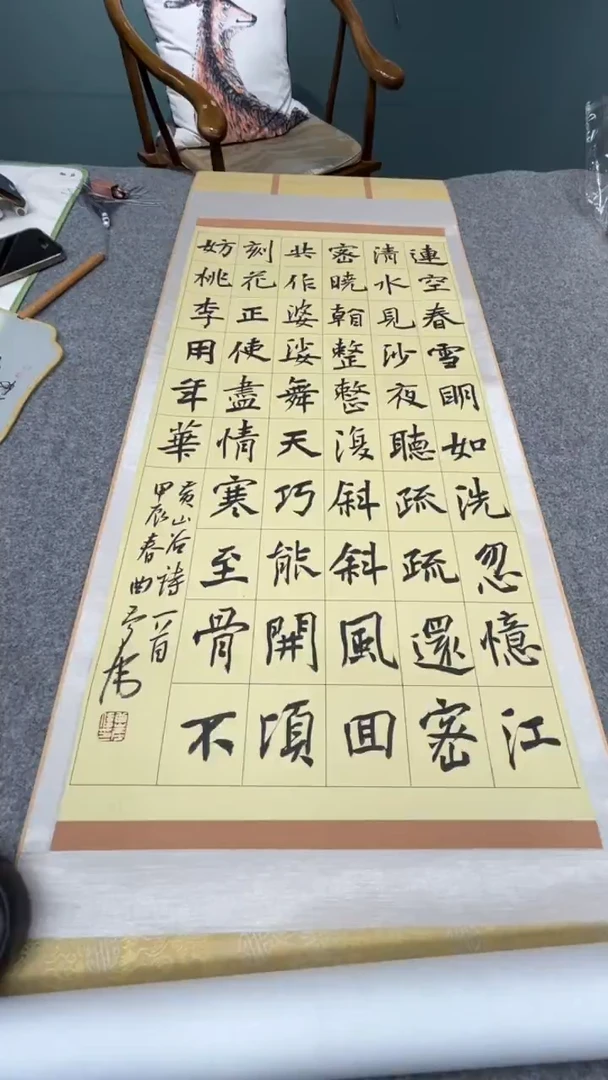 連空春雪明如洗忽憶江
清水見沙夜聽疏疏還密
密曉看整整復斜斜風回
共作婆娑舞天巧能開頃
刻花正使盡情寒至骨不
妨桃李用年華
黃山谷詩一首
甲辰春